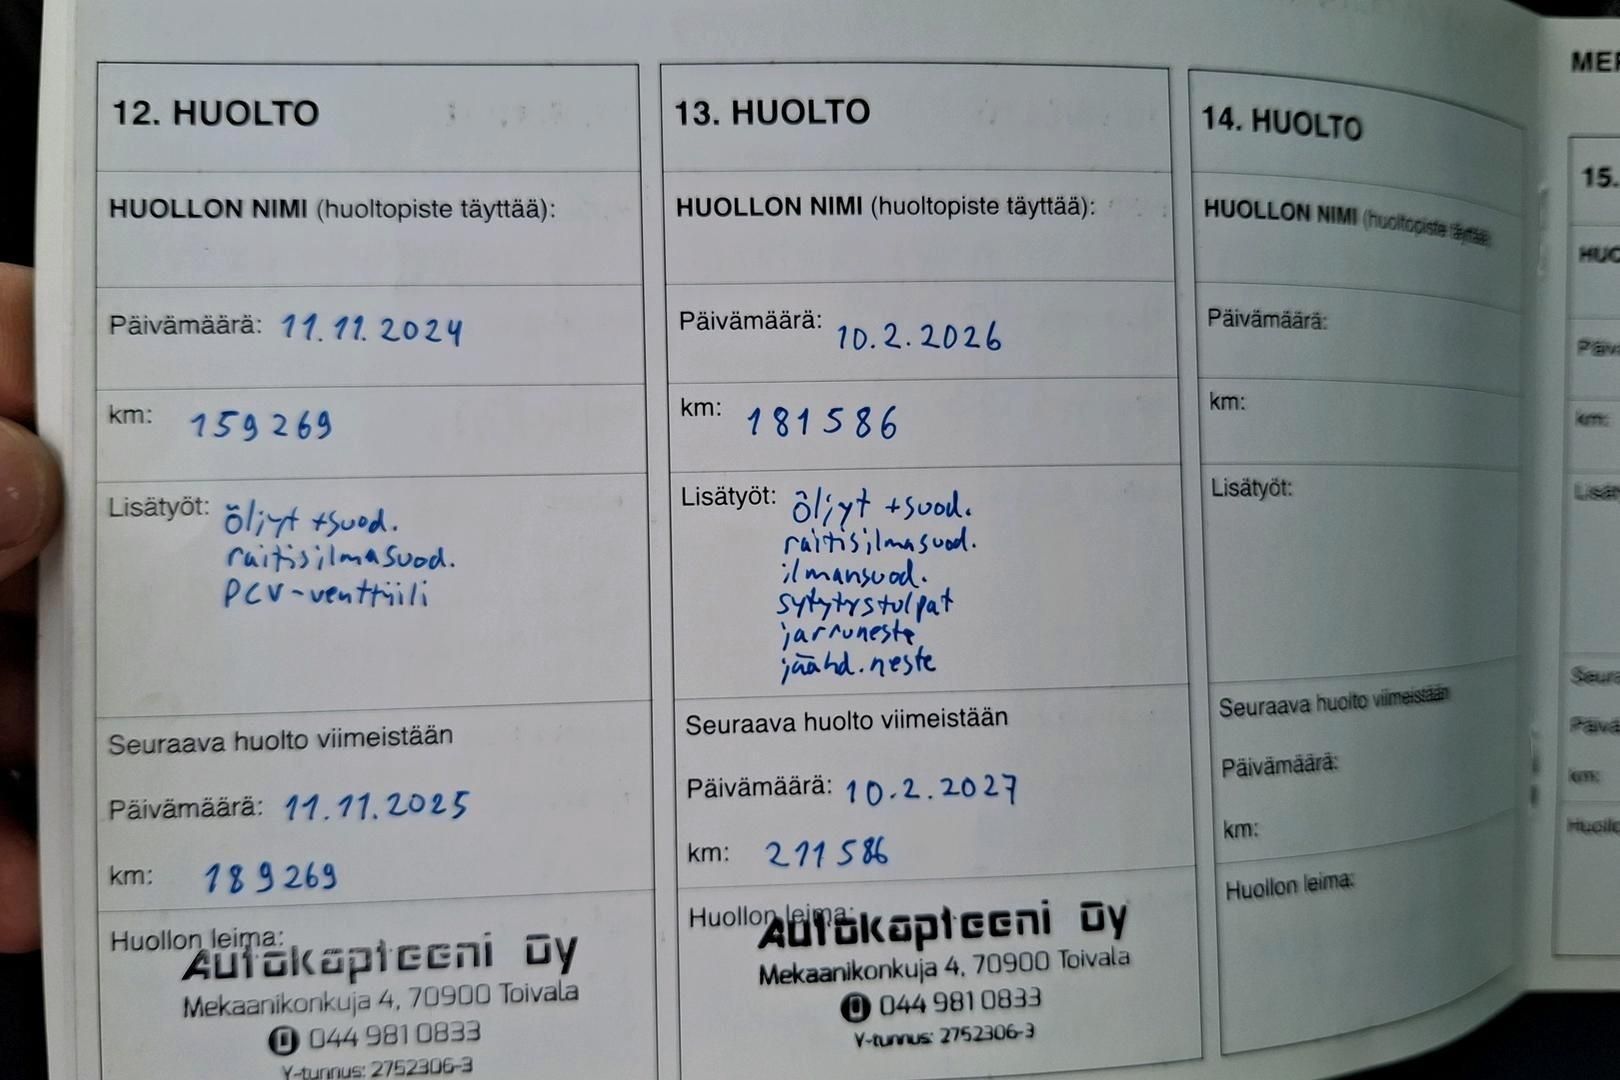 12. HUOLTO
HUOLLON NIMI (huoltopiste täyttää):
Päivämäärä: 11.11.2024
km: 159269
Lisätyöt: öljyt +suod.
raitisilmasuod.
PCV-venttiili
Seuraava huolto viimeistään
Päivämäärä: 11.11.2025
km: 189269
Huollon leima:
Autokapteeni Oy
Mekaanikonkuja 4, 70900 Toivala
044 981 0833
Y-tunnus: 2752306-3
13. HUOLTO
HUOLLON NIMI (huoltopiste täyttää):
Päivämäärä: 10.2.2026
km: 181586
Lisätyöt: öljyt +suod.
raitisilmasuod.
ilmansuod.
sytytystulpat
jarruneste
jäähd.neste
Seuraava huolto viimeistään
Päivämäärä: 10.2.2027
km: 211586
Huollon leima:
Autokapteeni Oy
Mekaanikonkuja 4, 70900 Toivala
044 981 0833
Y-tunnus: 2752306-3
14. HUOLTO
HUOLLON NIMI (huoltopiste täyttää)
Päivämäärä:
km:
Lisätyöt:
Seuraava huolto viimeistään
Päivämäärä:
km:
Huollon leima:
15.
km:
km: